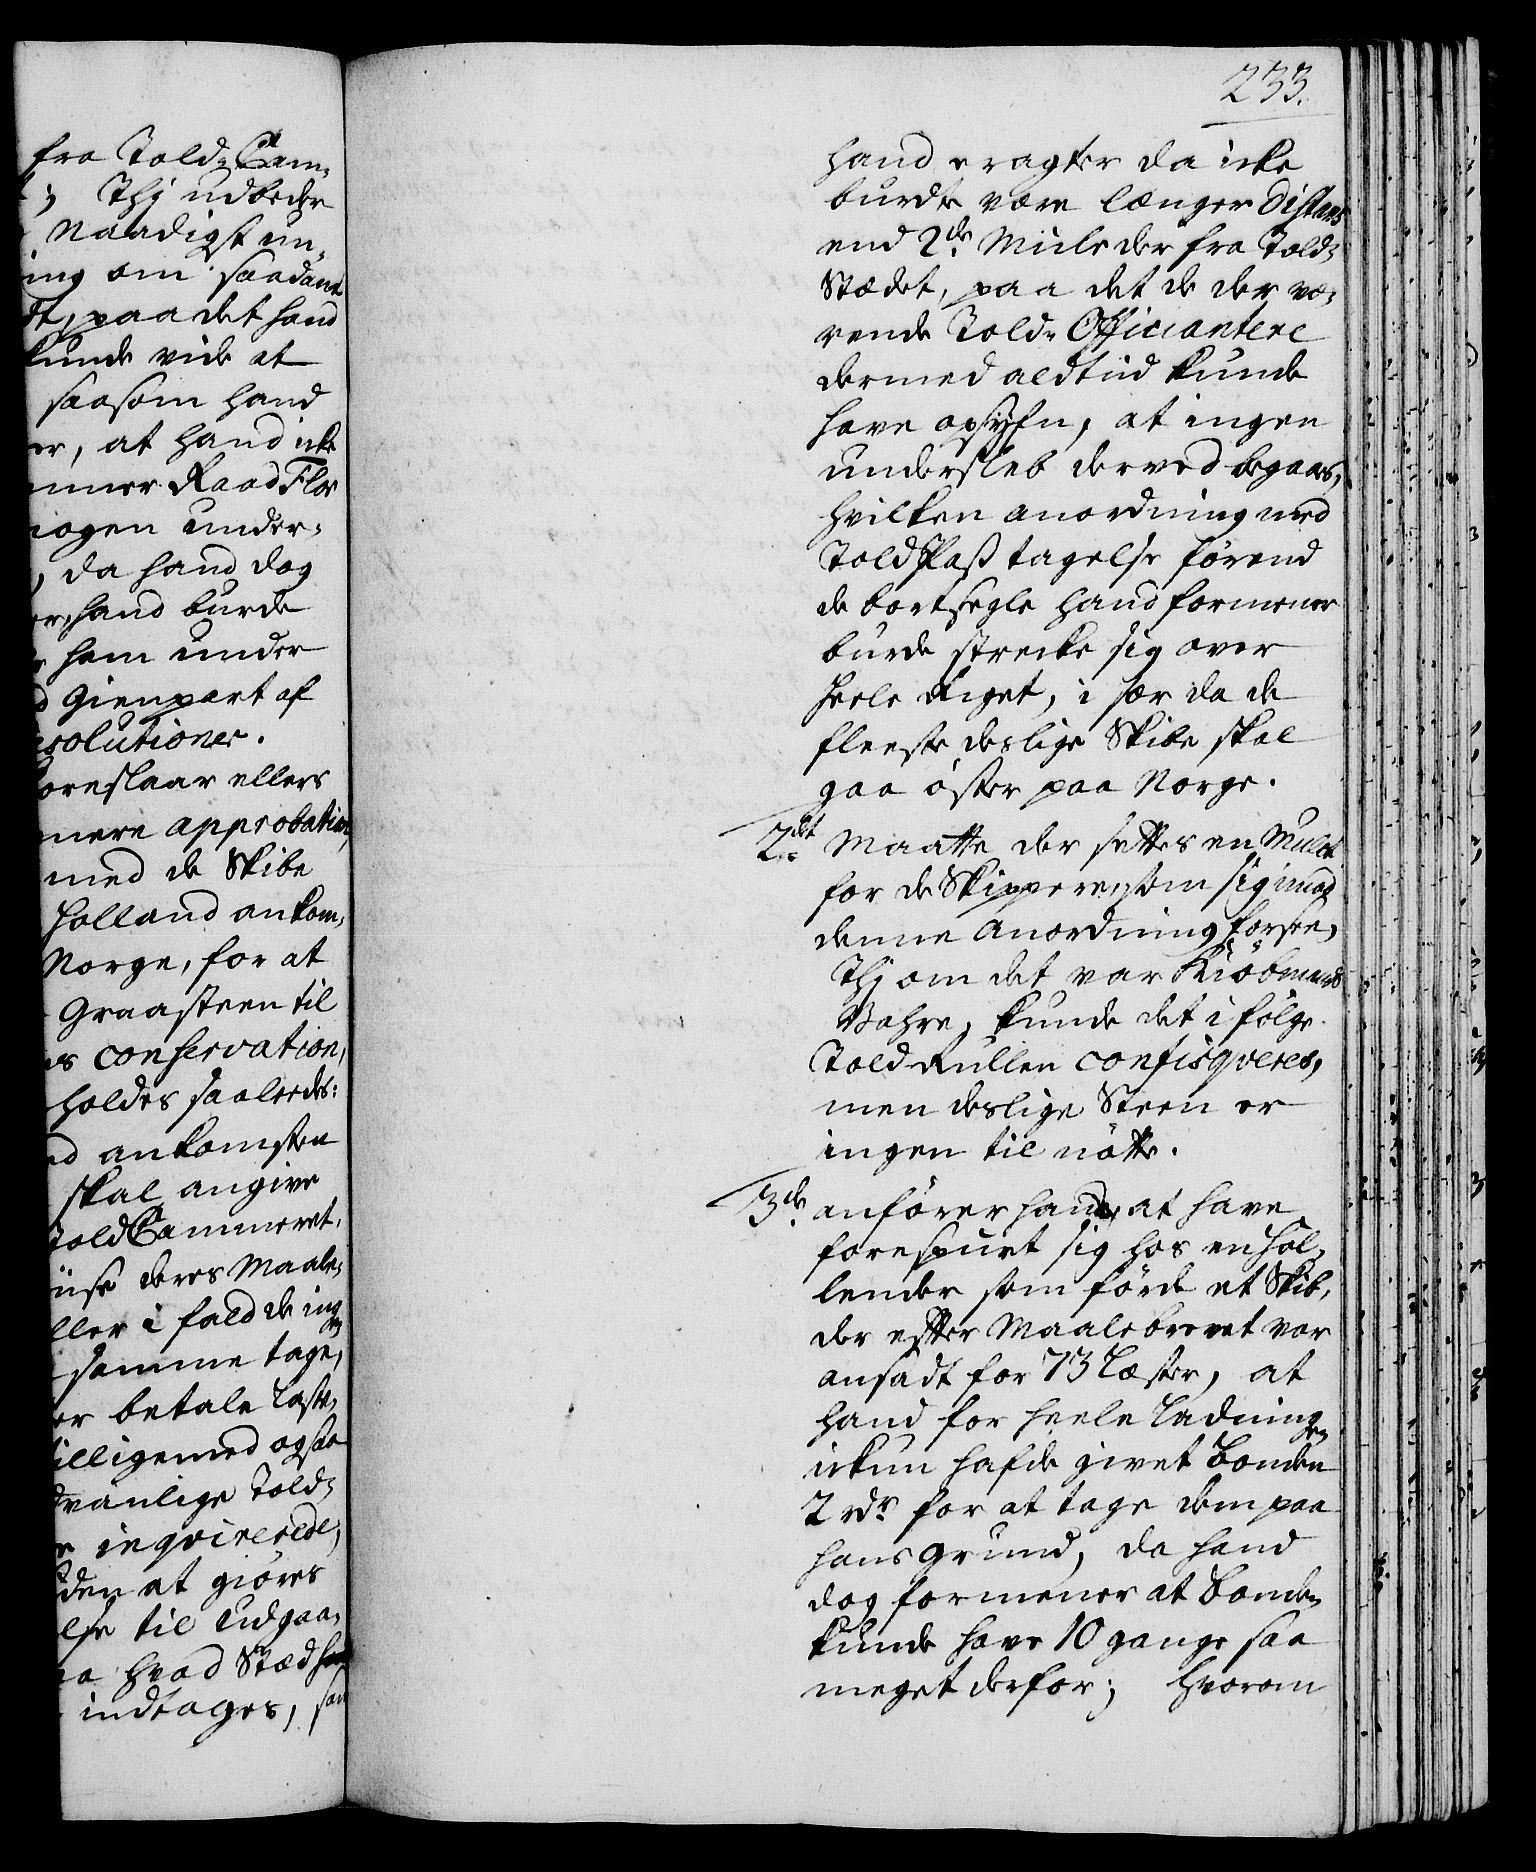 fra Told-Cam-
; Thj udbeder
Naadigst un-
ing om saadant
dt, paa det hand
kunde vide at
saasom hand
er, at hand icke
mmer Raad Flor
nogen under-
, da hand dog
er, hand burde
ham under
d Gienpart af
esolutioner.
foreslaar ellers
nere approbation,
med de Skibe
Holland ankom-
Norge, for at
Graasteen til
es conservation,
holdes saaleedes:
ed ankomsten
skal angive
ToldCammeret,
iise deres Maale-
ller i fald de ingen
samme tage,
er betale Laste-
tilligemed ogsaa
dvanlige Told-
e inqvirerede,
den at giöres
else til Udgaa-
a hvad Stæd hand
indtages, som
233.
hand eragter da icke
burdte være længer Distans
end 2de Miile der fra Told-
Stædet, paa det de der væ-
rende Told-Officiantere
dermed aldtiid kunde
have opsyn, at ingen
undersleb derved begaaes,
hvilken anordning med
ToldPass tagelse förend
de bortsegle hand formener
burde strecke sig over
heele Riget, i sær da de
fleeste deslige Skibe skal
gaa öster paa Norge.
2det Maatte der settes en Mulct
for de Skippere, som sig imod
denne Anordning forsee,
Thj om det var Kiöbmands
Vahre, kunde det i fölge
Told-Rullen confisqveres,
men deslige Steen er
ingen til nötte.
3de anförer hand, at have
forespurt sig hos en Hol-
lender som förde et Skib,
der efter Maalebrevet var
ansadt for 73 Læster, at
hand for heele Ladningen
ickun hafde givet Bonden
2 rdr for at tage dem paa
hans Grund, da hand
dog formener at Bonden
kunde have 10 gange saa
meget derfor; hvorom